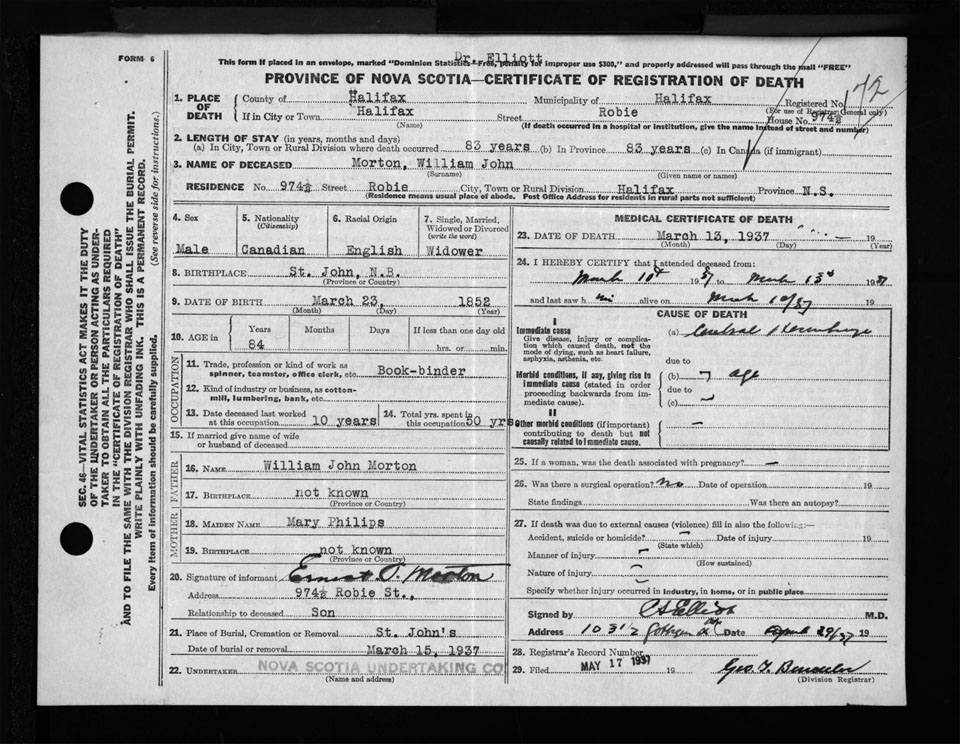 FORM 6
Dr. Elliott
This form if placed in an envelope, marked "Dominion Statistics—Free, penalty for improper use $300," and properly addressed will pass through the mail "FREE"
PROVINCE OF NOVA SCOTIA—CERTIFICATE OF REGISTRATION OF DEATH
172
1. PLACE OF DEATH County of Halifax Municipality of Halifax Registered No.
(For use of Registrar General only)
If in City or Town Halifax Street Robie House No. 974½
(Name) (If death occurred in a hospital or institution, give the name instead of street and number)
2. LENGTH OF STAY (in years, months and days)
(a) In City, Town or Rural Division where death occurred 83 years (b) In Province 83 years (c) In Canada (if immigrant)
3. NAME OF DECEASED Morton, William John
(Surname) (Given name or names)
RESIDENCE No. 974½ Street Robie City, Town or Rural Division Halifax Province N.S.
(Residence means usual place of abode. Post Office Address for residents in rural parts not sufficient)
4. Sex Male
5. Nationality (Citizenship) Canadian
6. Racial Origin English
7. Single, Married, Widowed or Divorced (write the word) Widower
8. BIRTHPLACE St. John, N.B.
(Province or Country)
9. DATE OF BIRTH March 23, 1852
(Month) (Day) (Year)
10. AGE in Years Months Days If less than one day old
84 hrs. or min.
OCCUPATION
11. Trade, profession or kind of work as spinner, teamster, office clerk, etc. Book-binder
12. Kind of industry or business, as cotton-mill, lumbering, bank, etc.
13. Date deceased last worked at this occupation 10 years
14. Total yrs. spent in this occupation 50 yrs
15. If married give name of wife or husband of deceased
FATHER
16. NAME William John Morton
17. BIRTHPLACE not known
(Province or Country)
MOTHER
18. MAIDEN NAME Mary Philips
19. BIRTHPLACE not known
(Province or Country)
20. Signature of informant Ernest O. Morton
Address 974½ Robie St.,
Relationship to deceased Son
21. Place of Burial, Cremation or Removal St. John's
Date of burial or removal March 15, 1937
22. UNDERTAKER NOVA SCOTIA UNDERTAKING CO
(Name and address)
MEDICAL CERTIFICATE OF DEATH
23. DATE OF DEATH March 13, 1937 19
(Month) (Day) (Year)
24. I HEREBY CERTIFY that I attended deceased from:
March 10th 1937 to March 13th 1937
and last saw him alive on March 10/37 19
CAUSE OF DEATH
I
Immediate cause
Give disease, injury or complication which caused death, not the mode of dying, such as heart failure, asphyxia, asthenia, etc.
(a) Cerebral Hemorrhage
due to
Morbid conditions, if any, giving rise to immediate cause (stated in order proceeding backwards from immediate cause).
(b) age
due to
(c)
II
Other morbid conditions (if important) contributing to death but not causally related to immediate cause.
25. If a woman, was the death associated with pregnancy?
26. Was there a surgical operation? no Date of operation 19
State findings Was there an autopsy?
27. If death was due to external causes (violence) fill in also the following:—
Accident, suicide or homicide? Date of injury 19
(State which)
Manner of injury
(How sustained)
Nature of injury
Specify whether injury occurred in industry, in home, or in public place
Signed by M.D.
Address 103½ Date April 29/37 19
28. Registrar's Record Number
29. Filed MAY 17 1937 19 Geo. T.
(Division Registrar)
SEC. 46—VITAL STATISTICS ACT MAKES IT THE DUTY
OF THE UNDERTAKER OR PERSON ACTING AS UNDER-
TAKER TO OBTAIN ALL THE PARTICULARS REQUIRED
IN THE "CERTIFICATE OF REGISTRATION OF DEATH"
AND TO FILE THE SAME WITH THE DIVISION REGISTRAR WHO SHALL ISSUE THE BURIAL PERMIT.
WRITE PLAINLY WITH UNFADING INK. THIS IS A PERMANENT RECORD.
Every item of information should be carefully supplied. (See reverse side for instructions.)